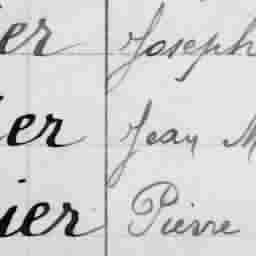 er Joseph
er Jean M
ier Pierre